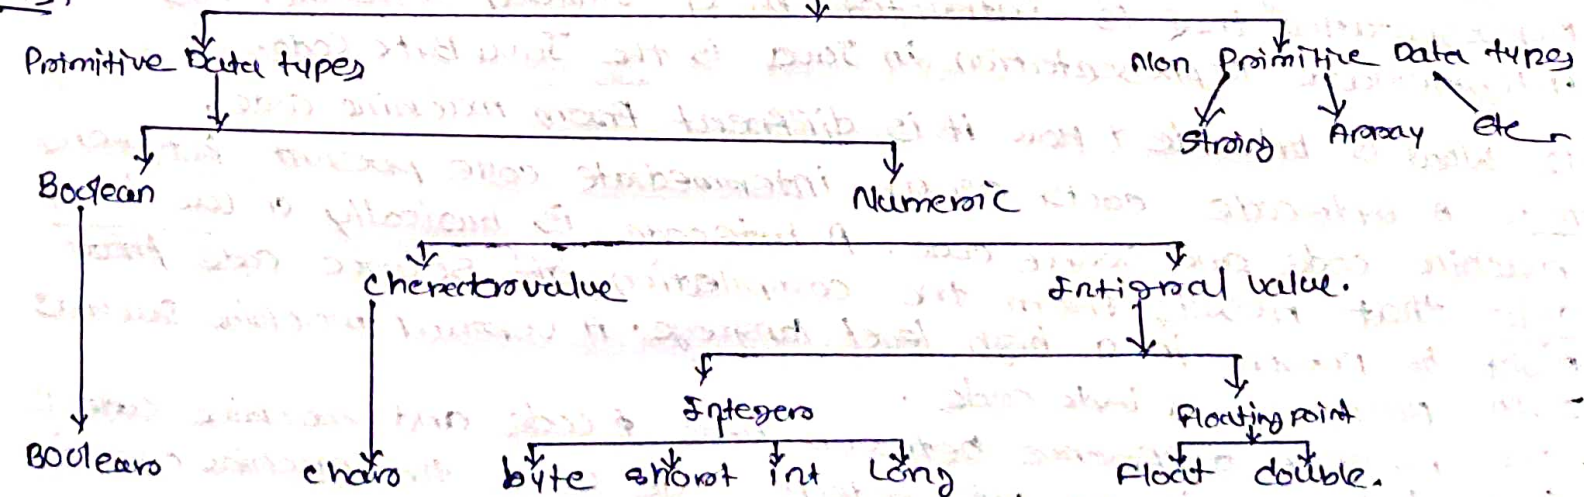 Primitive Data types Non Primitive Data types
String Array etc
Boolean Numeric
Cherectorvalue Intigral value.
Integers Floating point
Boolean char byte short int Long Float double.